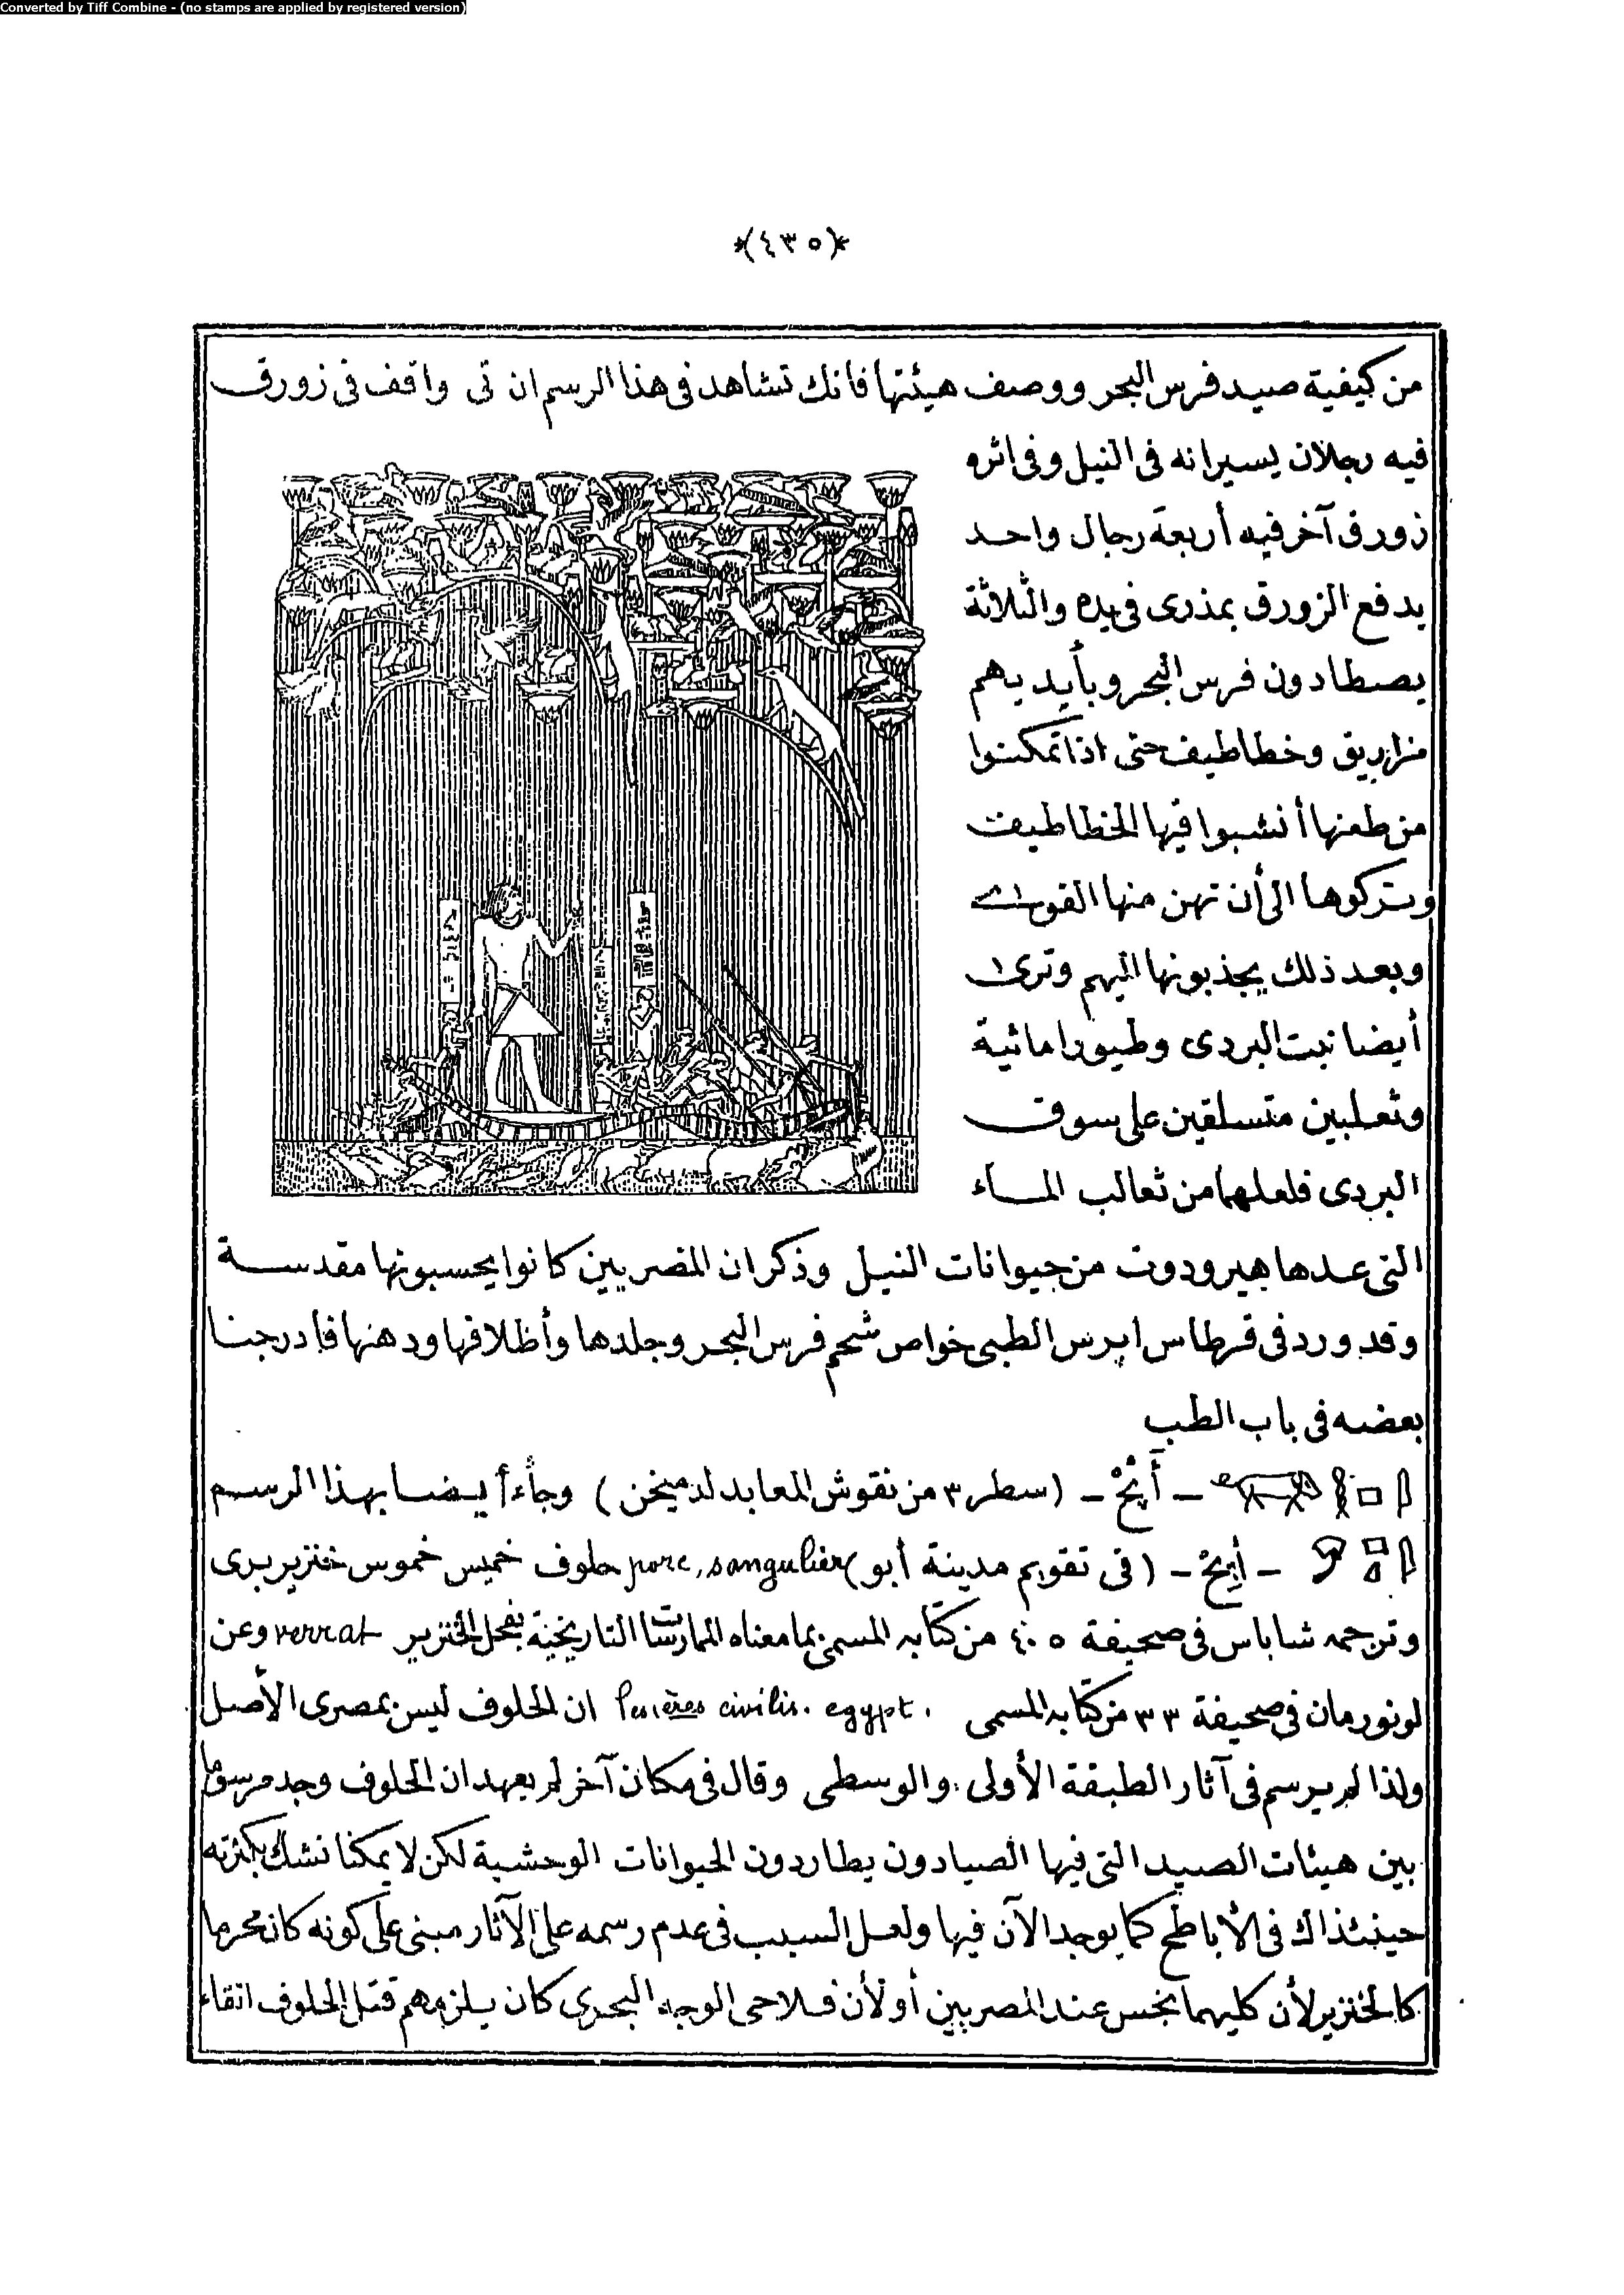 Converted by Tiff Combine - (no stamps are applied by registered version)
*(٤٣٥)*
من كيفية صيد فرس البحر ووصف هيئتها فانك تشاهد فى هذا الرسم ان تى واقف فى زورق
فيه رجلان يسيرانه فى النيل وفى اثره
زورق آخر فيه أربعة رجال واحد
يدفع الزورق بمذرى فى يده والثلاثة
يصطادون فرس البحر وبأيديهم
مزاريق وخطاطيف حتى اذا تمكنوا
من طعنها أنشبوا فيها الخطاطيف
وتركوها الى أن تهن منها القوى
وبعد ذلك يجذبونها اليهم وترى
أيضا نبت البردى وطيورا مائية
وثعلبين متسلقين على سوق
البردى فلعلهما من ثعالب الماء
التى عدها هيرودوت من حيوانات النيل وذكر ان المصريين كانوا يحسبونها مقدسة
وقد ورد فى قرطاس ابرس الطبى خواص شحم فرس البحر وجلدها وأظلاقها ودهنها فادرجنا
بعضه فى باب الطب
- أَپْحْ - (سطر ٣ من نقوش المعابد لدميخن) وجاء أيضا بهذا الرسم
- أپِحْ - (فى تقويم مدينة أبو) porc, sangulier حلوف خميس خموس خنزير برى
وترجمه شاباس فى صحيفة ٤٠٥ من كتابه المسمى بما معناه الممارسات التاريخية بفحل الخنزير verrat وعن
لونورمان فى صحيفة ٣٣ من كتابه المسمى civilis. egypt. ان الحلوف ليس بمصرى الأصل
ولذا لم يرسم فى آثار الطبقة الأولى والوسطى وقال فى مكان آخر لم يعهد ان الحلوف وجد مرسوما
بين هيئات الصيد التى فيها الصيادون يطاردون الحيوانات الوحشية لكن لا يمكنا نشك بكثرته
حينئذاك فى الأباطح كما يوجد الآن فيها ولعل السبب فى عدم رسمه على الآثار مبنى على كونه كان محرما
كالخنزير لأن كليهما نجس عند المصريين أو لأن فلاحى الوجه البحرى كان يلزمهم قتل الحلوف اتقاء